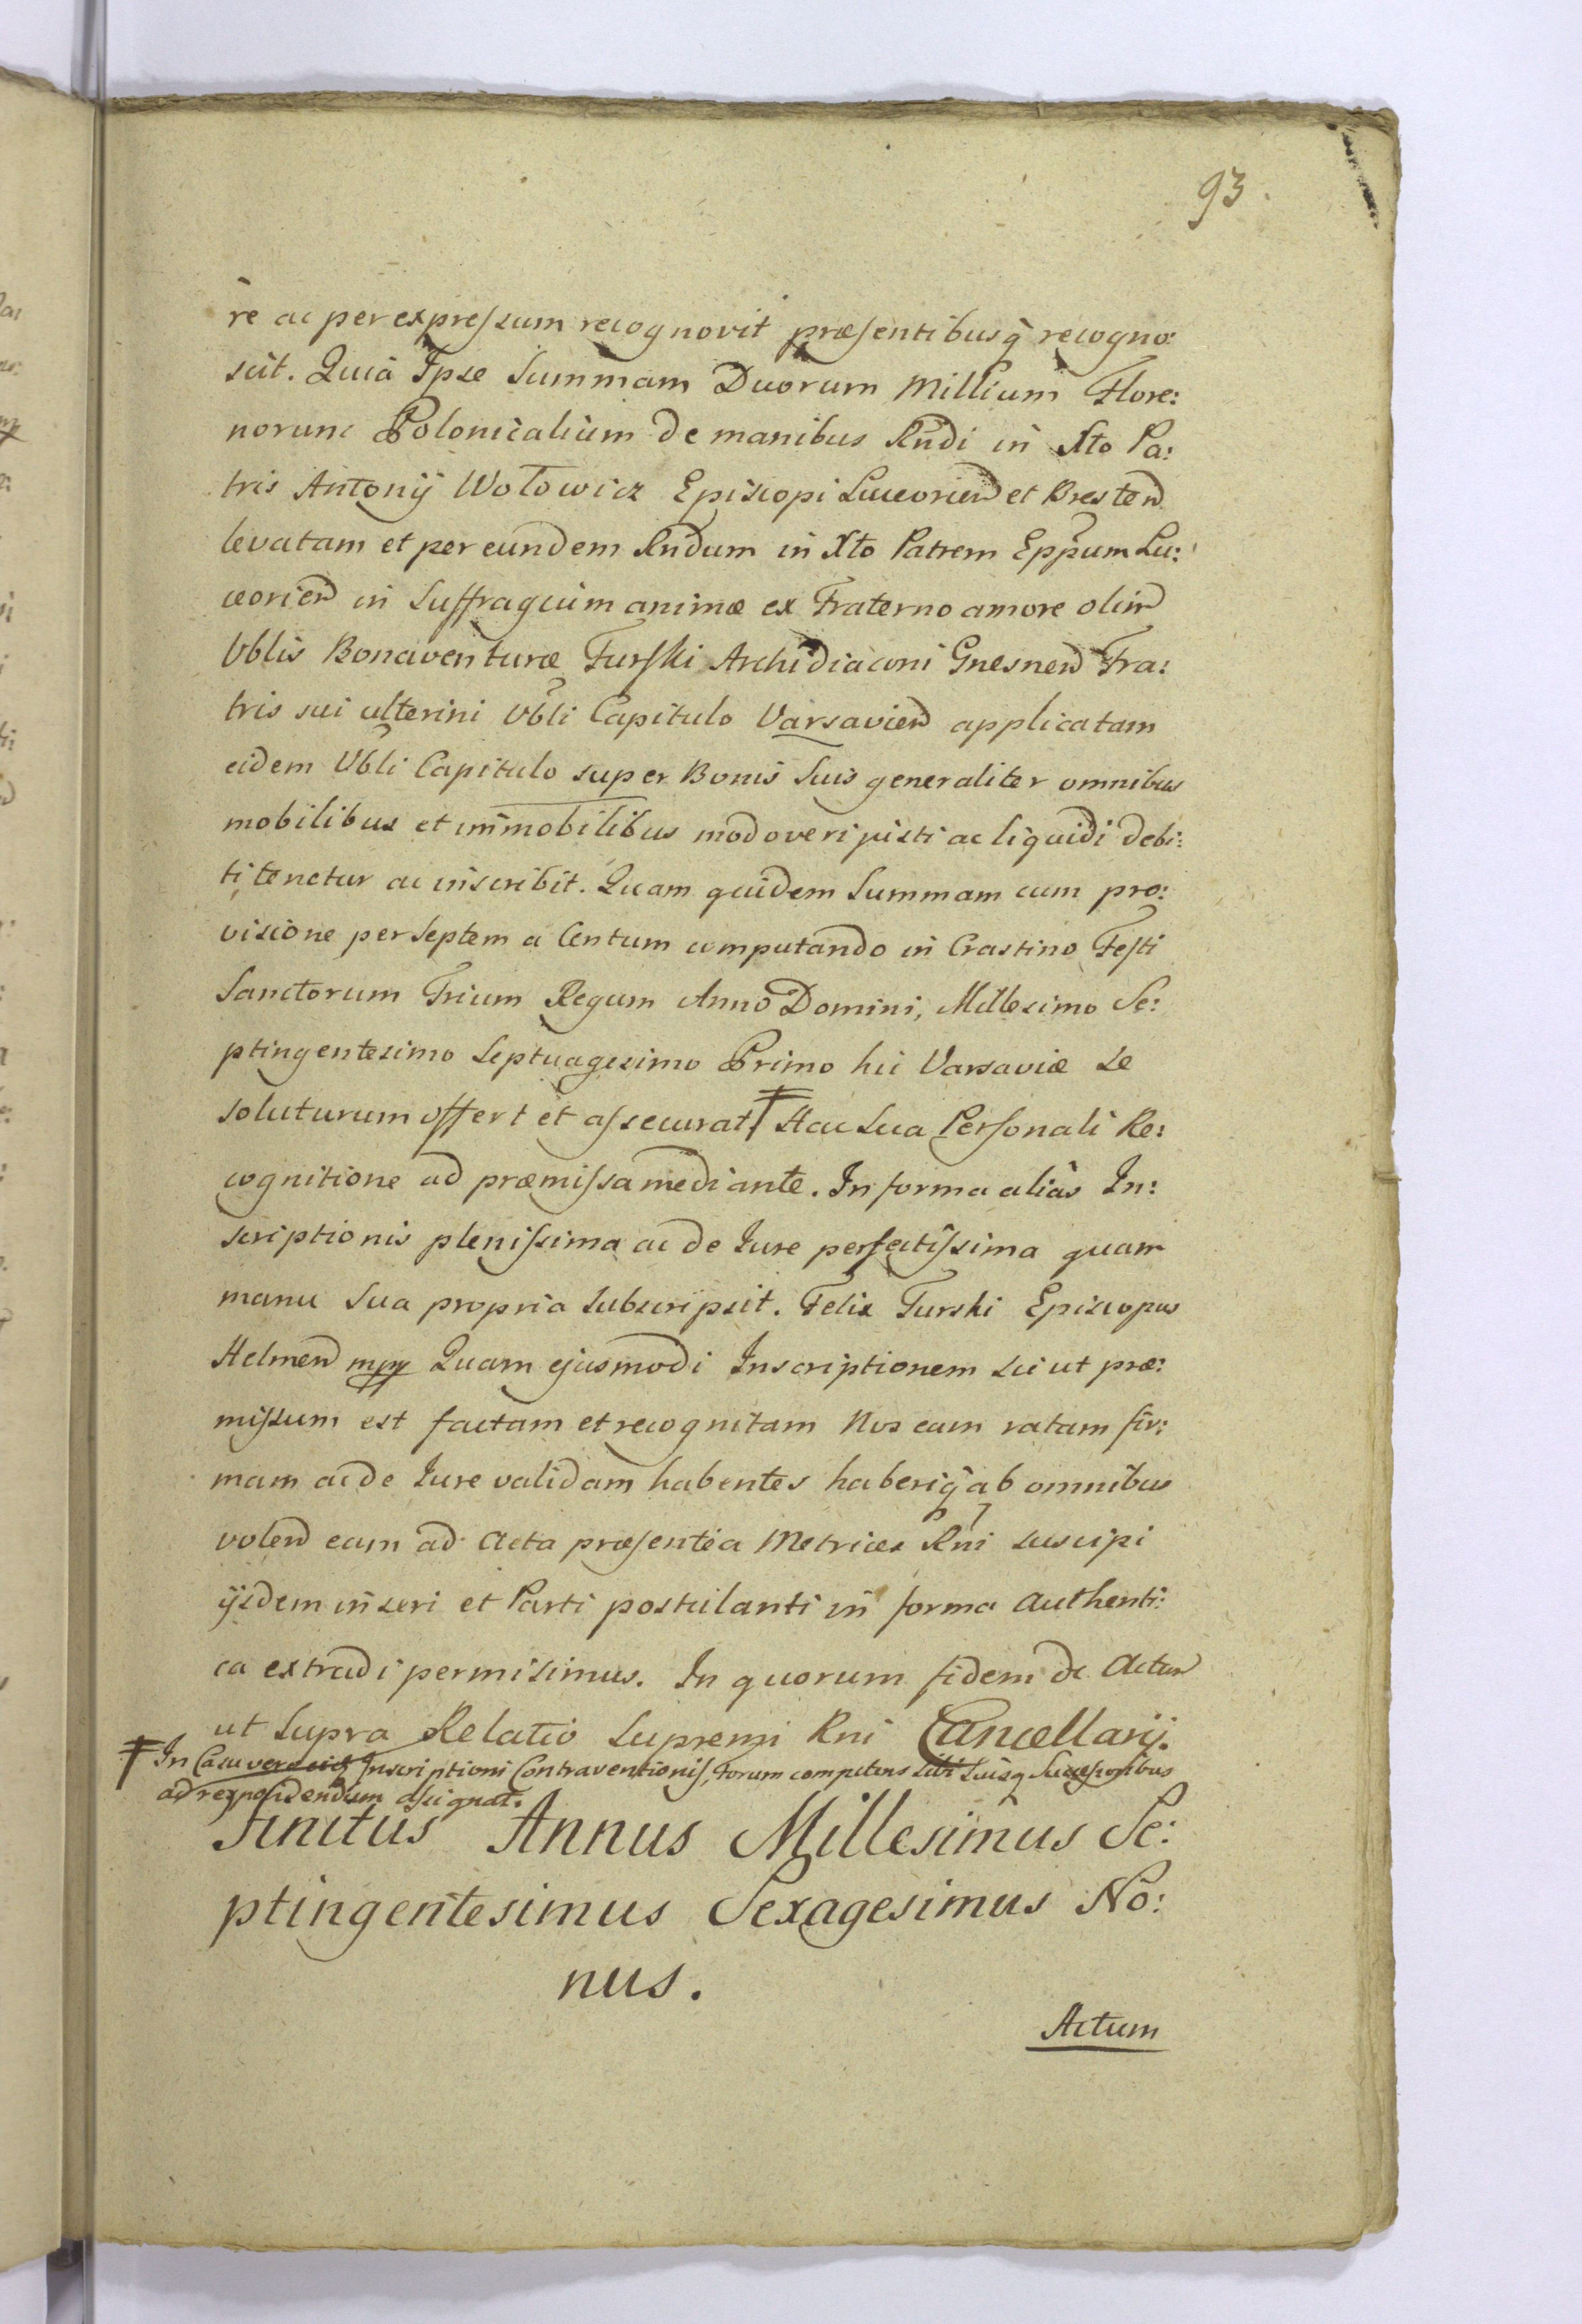 93.
re ac per expressum recognovit præsentibusq̃ recogno:
scit. Quia Ipse Summam Duorum Millium Flore:
norum Polonicalium de manibus Rndi in Xto Pa:
tris Antonij Wołowicz Episcopi Luceorien et Bresten
levatam et per eundem Rndum in Xto Patrem Eppum Lu:
ceorien in Suffragium animæ ex Fraterno amore olim
Vblis Bonaventuræ Turski Archidiaconi Gnesnen Fra:
tris sui ulterini Vbli Capitulo Varsavien applicatam
eidem Vbli Capitulo super Bonis Suis generaliter omnibus
mobilibus et immobilibus modo veri justi ac liquidi debi:
ti tenetur ac inscribit. Quam quidem Summam cum pro:
visione per Septem a Centum computando in Crastino Festi
Sanctorum Trium Regum Anno Domini, Millesimo Se:
ptingentesimo Septuagesimo Primo hic Varsaviæ se
soluturum offert et assecurat. ‡ Hac Sua Personali Re:
cognitione ad præmissa mediante. In forma alias In:
scriptionis plenissima ac de Iure perfectissima quam
manu Sua propria subscripsit. Felix Turski Episcopus
Helmen mpp Quam ejusmodi Inscriptionem sic ut præ:
missum est factam et recognitam Nos eam ratam fir:
mam ac de Iure validam habentes haberiq̃ ab omnibus
volen eam ad Acta præsentia Metrices Rni suscipi
ijsdem inseri et Parti postulanti in forma Authenti:
ca extradi permisimus. In quorum fidem &c Actum
ut Supra Relatio Supremi Rni Cancellarij.
‡ In Casu vero Inscriptioni Contraventionis, Forum competens Sibi Suisq Successoribus
ad respondendum assignat.
Finitus Annus Millesimus Se:
ptingentesimus Sexagesimus No:
nus.
Actum